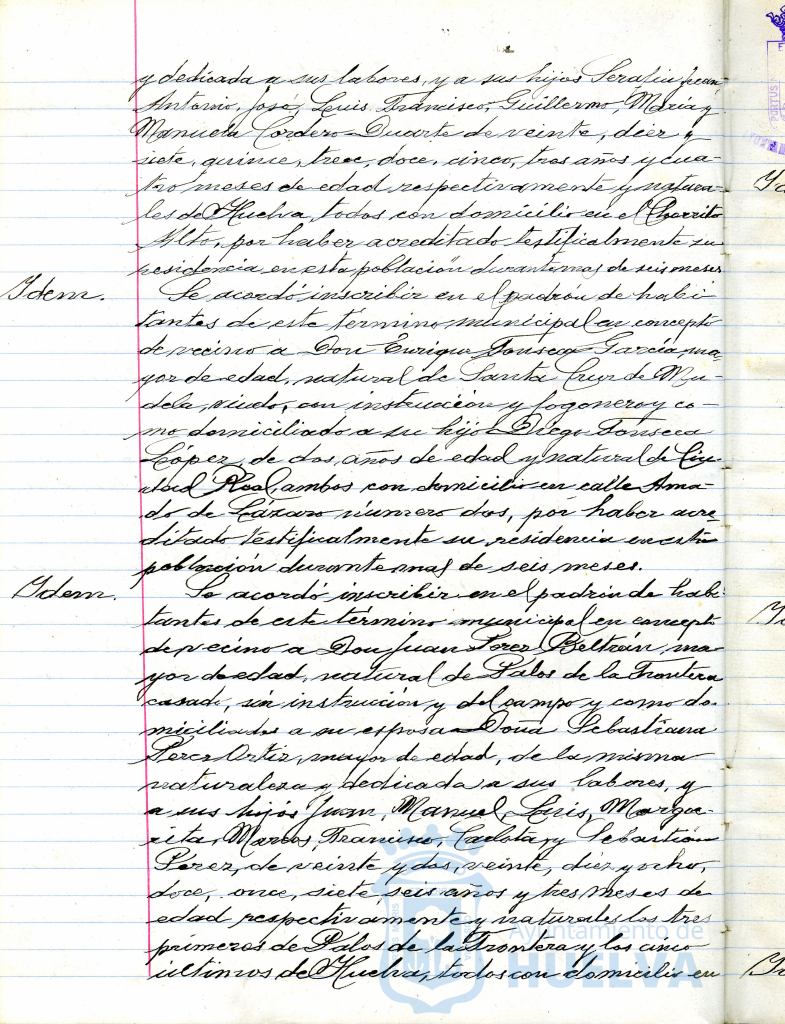 y dedicada a sus labores, y a sus hijos Serafin, Juan
Antonio, José, Luis, Francisco, Guillermo, María y
Manuela Cordero Duarte de veinte, diez y
siete, quince, trece, doce, cinco, tres años y cua-
tro meses de edad respectivamente y natura-
les de Huelva, todos con domicilio en el Chorrito
Alto, por haber acreditado testificalmente su
residencia en esta población durante mas de seis meses
Idem.
Se acordó inscribir en el padrón de habi-
tantes de este término municipal en concepto
de vecino a Don Enrique Fonseca García, ma-
yor de edad, natural de Santa Cruz de Mu-
dela, viudo, con instrucción y fogonero y co-
mo domiciliado a su hijo Diego Fonseca
López, de dos años de edad y natural de Ciu-
dad Real, ambos con domicilio en calle Ama-
do de Lázaro número dos, por haber acre-
ditado testificalmente su residencia en esta
población durante mas de seis meses.
Idem.
Se acordó inscribir en el padrón de habi-
tantes de este término municipal en concepto
de vecino a Don Juan Perez Beltrán, ma-
yor de edad, natural de Palos de la Frontera
casado, sin instrucción y del campo y como do-
miciliados a su esposa Doña Sebastiana
Perez Ortiz, mayor de edad, de la misma
naturaleza y dedicada a sus labores, y
a sus hijos Juan, Manuel, Luis, Marga-
rita, Marcos, Francisco, Carlota, y Sebastián
Pérez, de veinte y dos, veinte, diez y ocho,
doce, once, siete, seis años y tres meses de
edad respectivamente y naturales los tres
primeros de Palos de la Frontera y los cinco
últimos de Huelva, todos con domicilio en
Ayuntamiento de
HUELVA